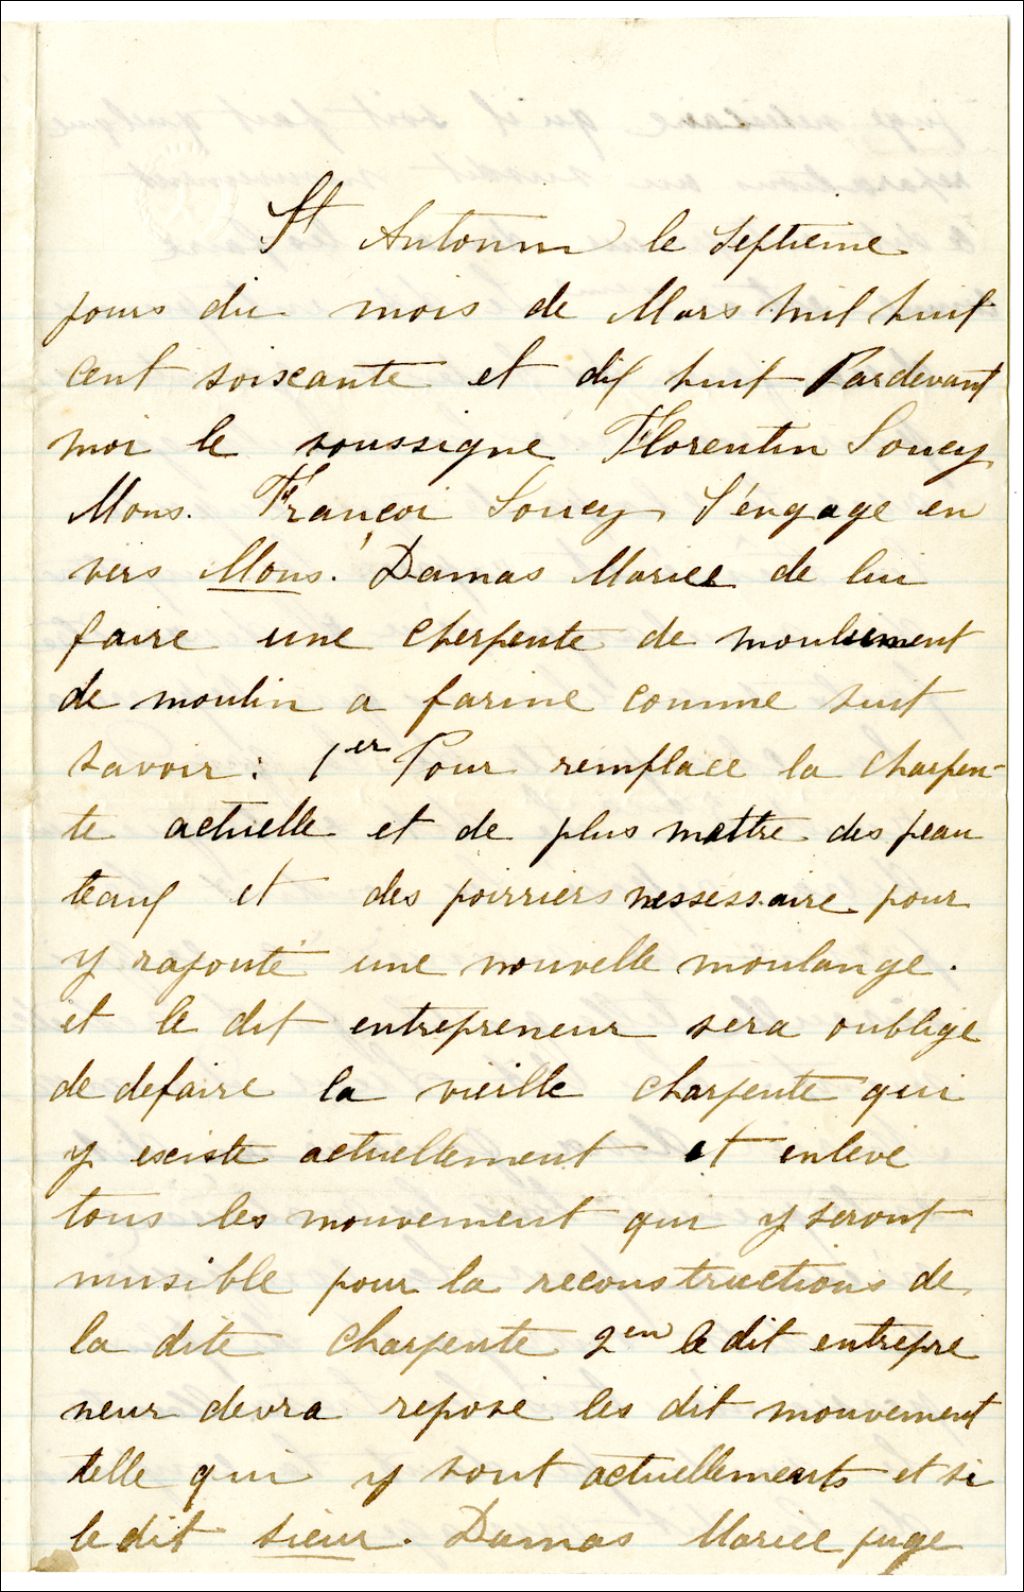 St Antonin le Septieme
jours du mois de Mars mil huit
cent soixante et dix huit Pardevant
moi le soussigne Florentin Soucy
Mons. Françoi Soucy S'engage en
vers Mons. Damas Mariee de lui
faire une cherpente de
de moulin a farine comme suit
savoir: 1er Pour remplace la charpen-
te actuelle et de plus mettre des peau
teaux et des poirriers nessessaire pour
y rajouté une nouvelle moulange.
et le dit entrepreneur sera oublige
de defaire la vieille charpente qui
y existe actuellement et enlevé
tous les mouvement qui y seront
nuisible pour la reconstructions de
la dite charpente 2em le dit entrepre
neur devra reposé les dit mouvement
telle qui y sont actuellements et si
le dit sieur. Damas Mariee juge